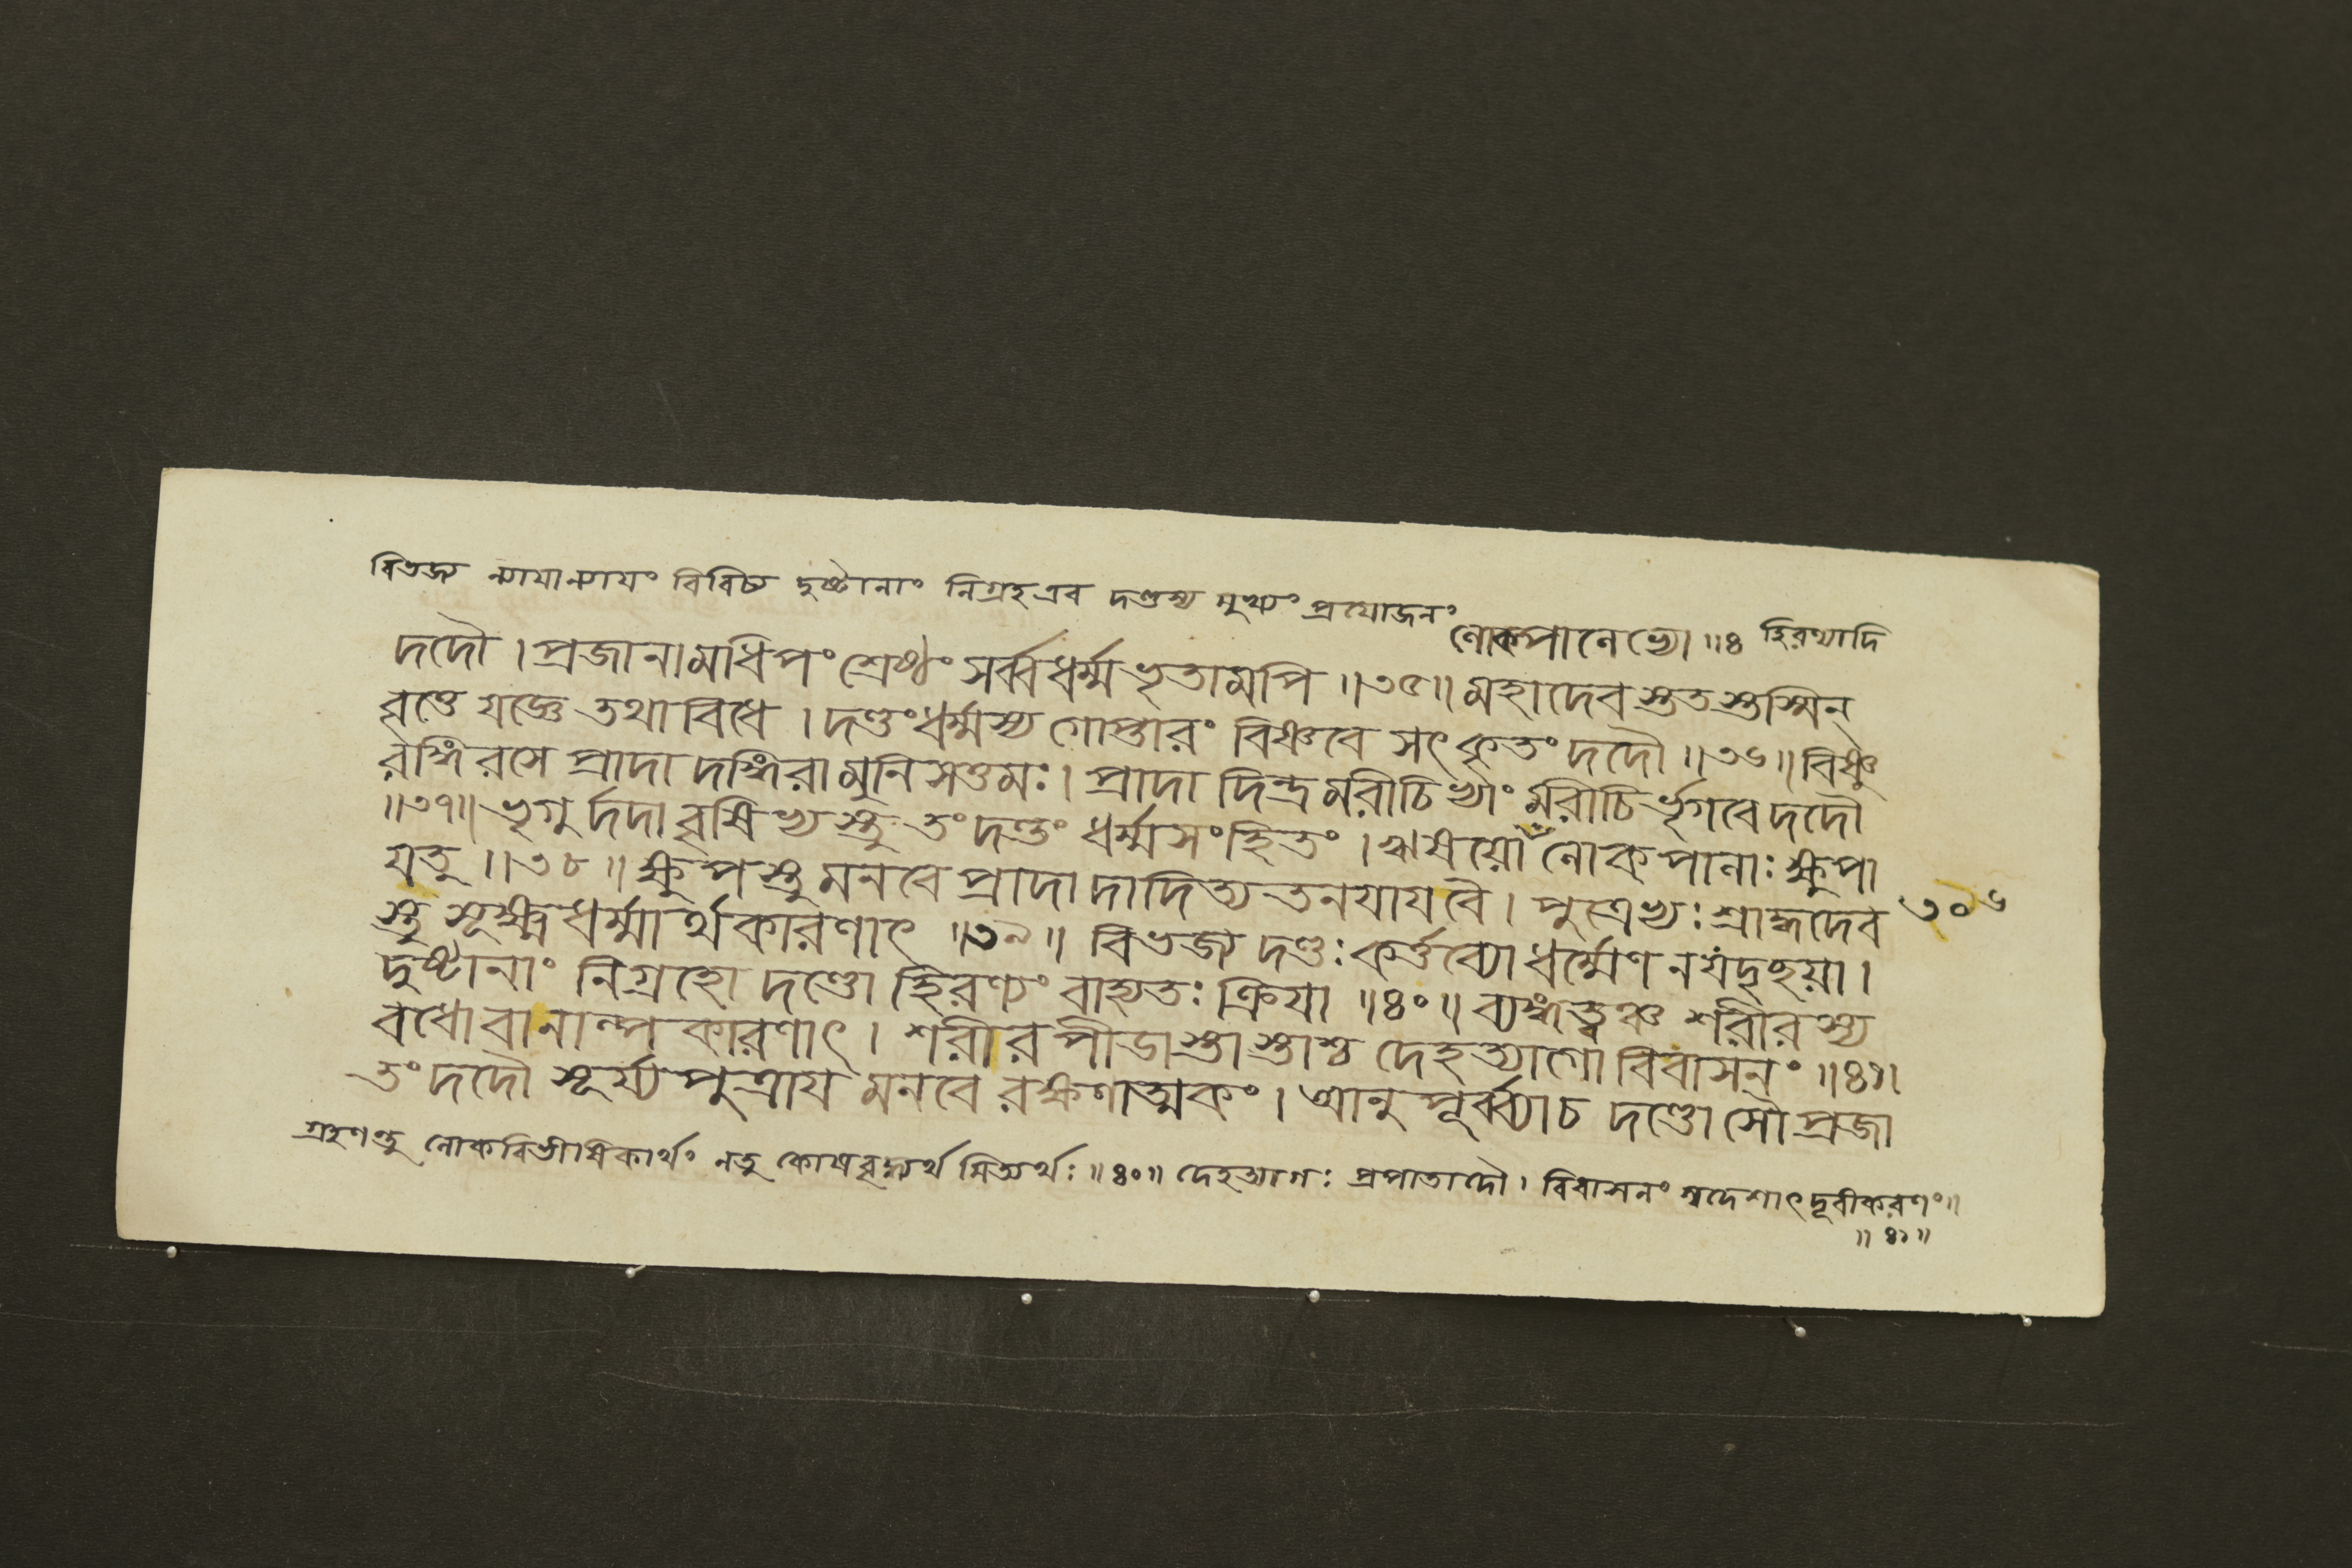 বিভজ্য ন্যাযান্যাযং বিবিচ্য দুষ্টানাং নিগ্রহ এব দণ্ডস্য মুখ্যং প্রযোজনং
লোকপালেভ্যো ॥৪ হিরণ্যাদি
দদৌ । প্রজানামধিপং শ্রেষ্ঠং সর্ব্বধর্ম্মভৃতামপি ॥৩৫॥ মহাদেবস্ততস্তস্মিন্
বৃত্তে যজ্ঞে তথাবিধে । দণ্ডং ধর্ম্মস্য গোপ্তারং বিষ্ণবে সৎকৃতং দদৌ ॥৩৬॥ বিষ্ণু
রঙ্গিরসে প্রাদাদঙ্গিরা মুনিসত্তমঃ । প্রাদাদিন্দ্রমরীচিভ্যাং মরীচির্ভৃগবে দদৌ
॥৩৭॥ ভৃগুর্দদাবৃষিভ্যস্তু তং দণ্ডং ধর্ম্মসংহিতং । ঋষযো লোকপালাঃ ক্ষুপা
যতু ॥৩৮॥ ক্ষুপস্তু মনবে প্রাদাদাদিত্যতনযাযবৈ । পুত্রেভ্যঃ শ্রাদ্ধদেব ৩০৬
স্তু সূক্ষ্মধর্ম্মার্থকারণাৎ ॥৩৯॥ বিভজ্য দণ্ডঃ কর্ত্তব্যো ধর্ম্মেণ নযদৃচ্ছযা ।
দুষ্টানাং নিগ্রহো দণ্ডো হিরণ্যং বাহ্যতঃ ক্রিযা ॥৪০॥ ব্যঙ্গত্বঞ্চ শরীরস্য
বধো বানাল্পকারণাৎ । শরীরপীডাস্তাস্তাশ্চ দেহত্যাগো বিবাসনং ॥৪১॥
তং দদৌ সূর্য্যপুত্রায মনবে রক্ষণাত্মকং । আনুপূর্ব্ব্যাচ দণ্ডোসৌ প্রজা
গ্রহণন্তু লোকবিভীষিকার্থং নতু কোষবৃদ্ধ্যর্থমিত্যর্থঃ ॥৪০॥ দেহত্যাগঃ প্রপাতাদৌ । বিবাসনং স্বদেশাৎ দূরীকরণং॥
॥৪১॥